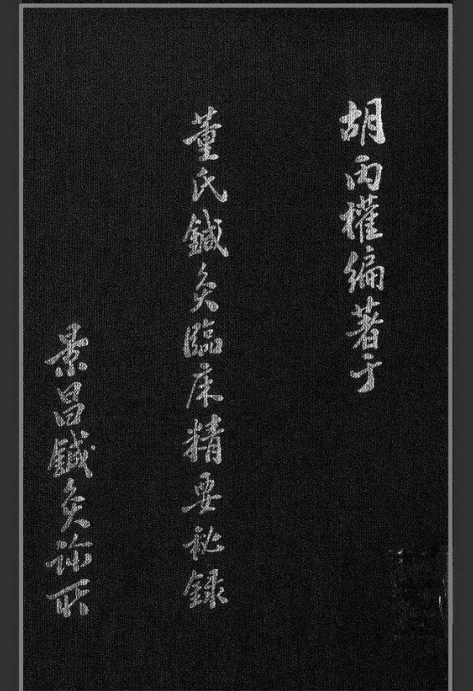 胡丙權編著于
董氏鍼灸臨床精要秘録
景昌鍼灸診所